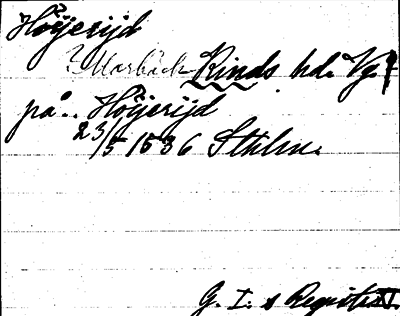 Höijerijd
? Marbäck Kinds hd. Vg.
på.. Höijerijd
23/5 1536 Sthlm.
G. I. s Registr.